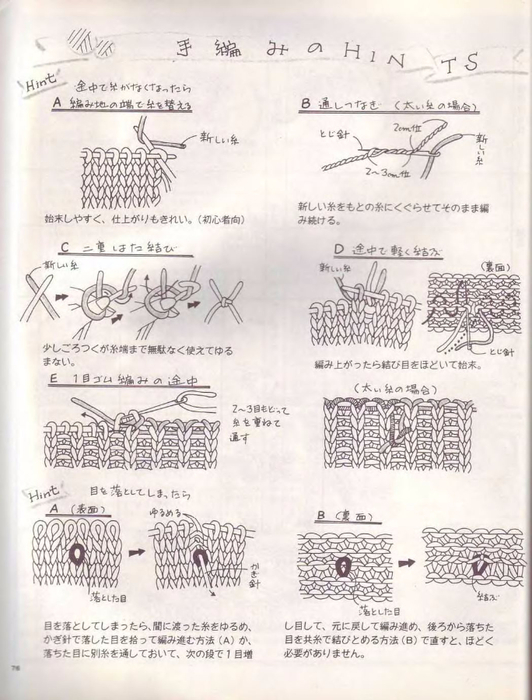 手編みのHINTS
Hint 途中で糸がなくなったら
A 編み地の端で糸を替える
新しい糸
始末しやすく、仕上がりもきれい。(初心者向)
B 通しつなぎ (太い糸の場合)
とじ針
2cm位
新しい糸
2~3cm位
新しい糸をもとの糸にくぐらせてそのまま編
み続ける。
C 二重はた結び
新しい糸
少しごろつくが糸端まで無駄なく使えてゆる
まない。
D 途中で軽く結ぶ
新しい糸
(裏面)
とじ針
編み上がったら結び目をほどいて始末。
E 1目ゴム編みの途中
2~3目もどって
糸を重ねて
通す
(太い糸の場合)
Hint 目を落としてしまったら
A (表面)
ゆるめる
かぎ針
落とした目
B (裏面)
落とした目
結ぶ
目を落としてしまったら、間に渡った糸をゆるめ、
かぎ針で落した目を拾って編み進む方法(A)か、
落ちた目に別糸を通しておいて、次の段で1目増
し目して、元に戻して編み進め、後ろから落ちた
目を共糸で結びとめる方法(B)で直すと、ほどく
必要がありません。
76